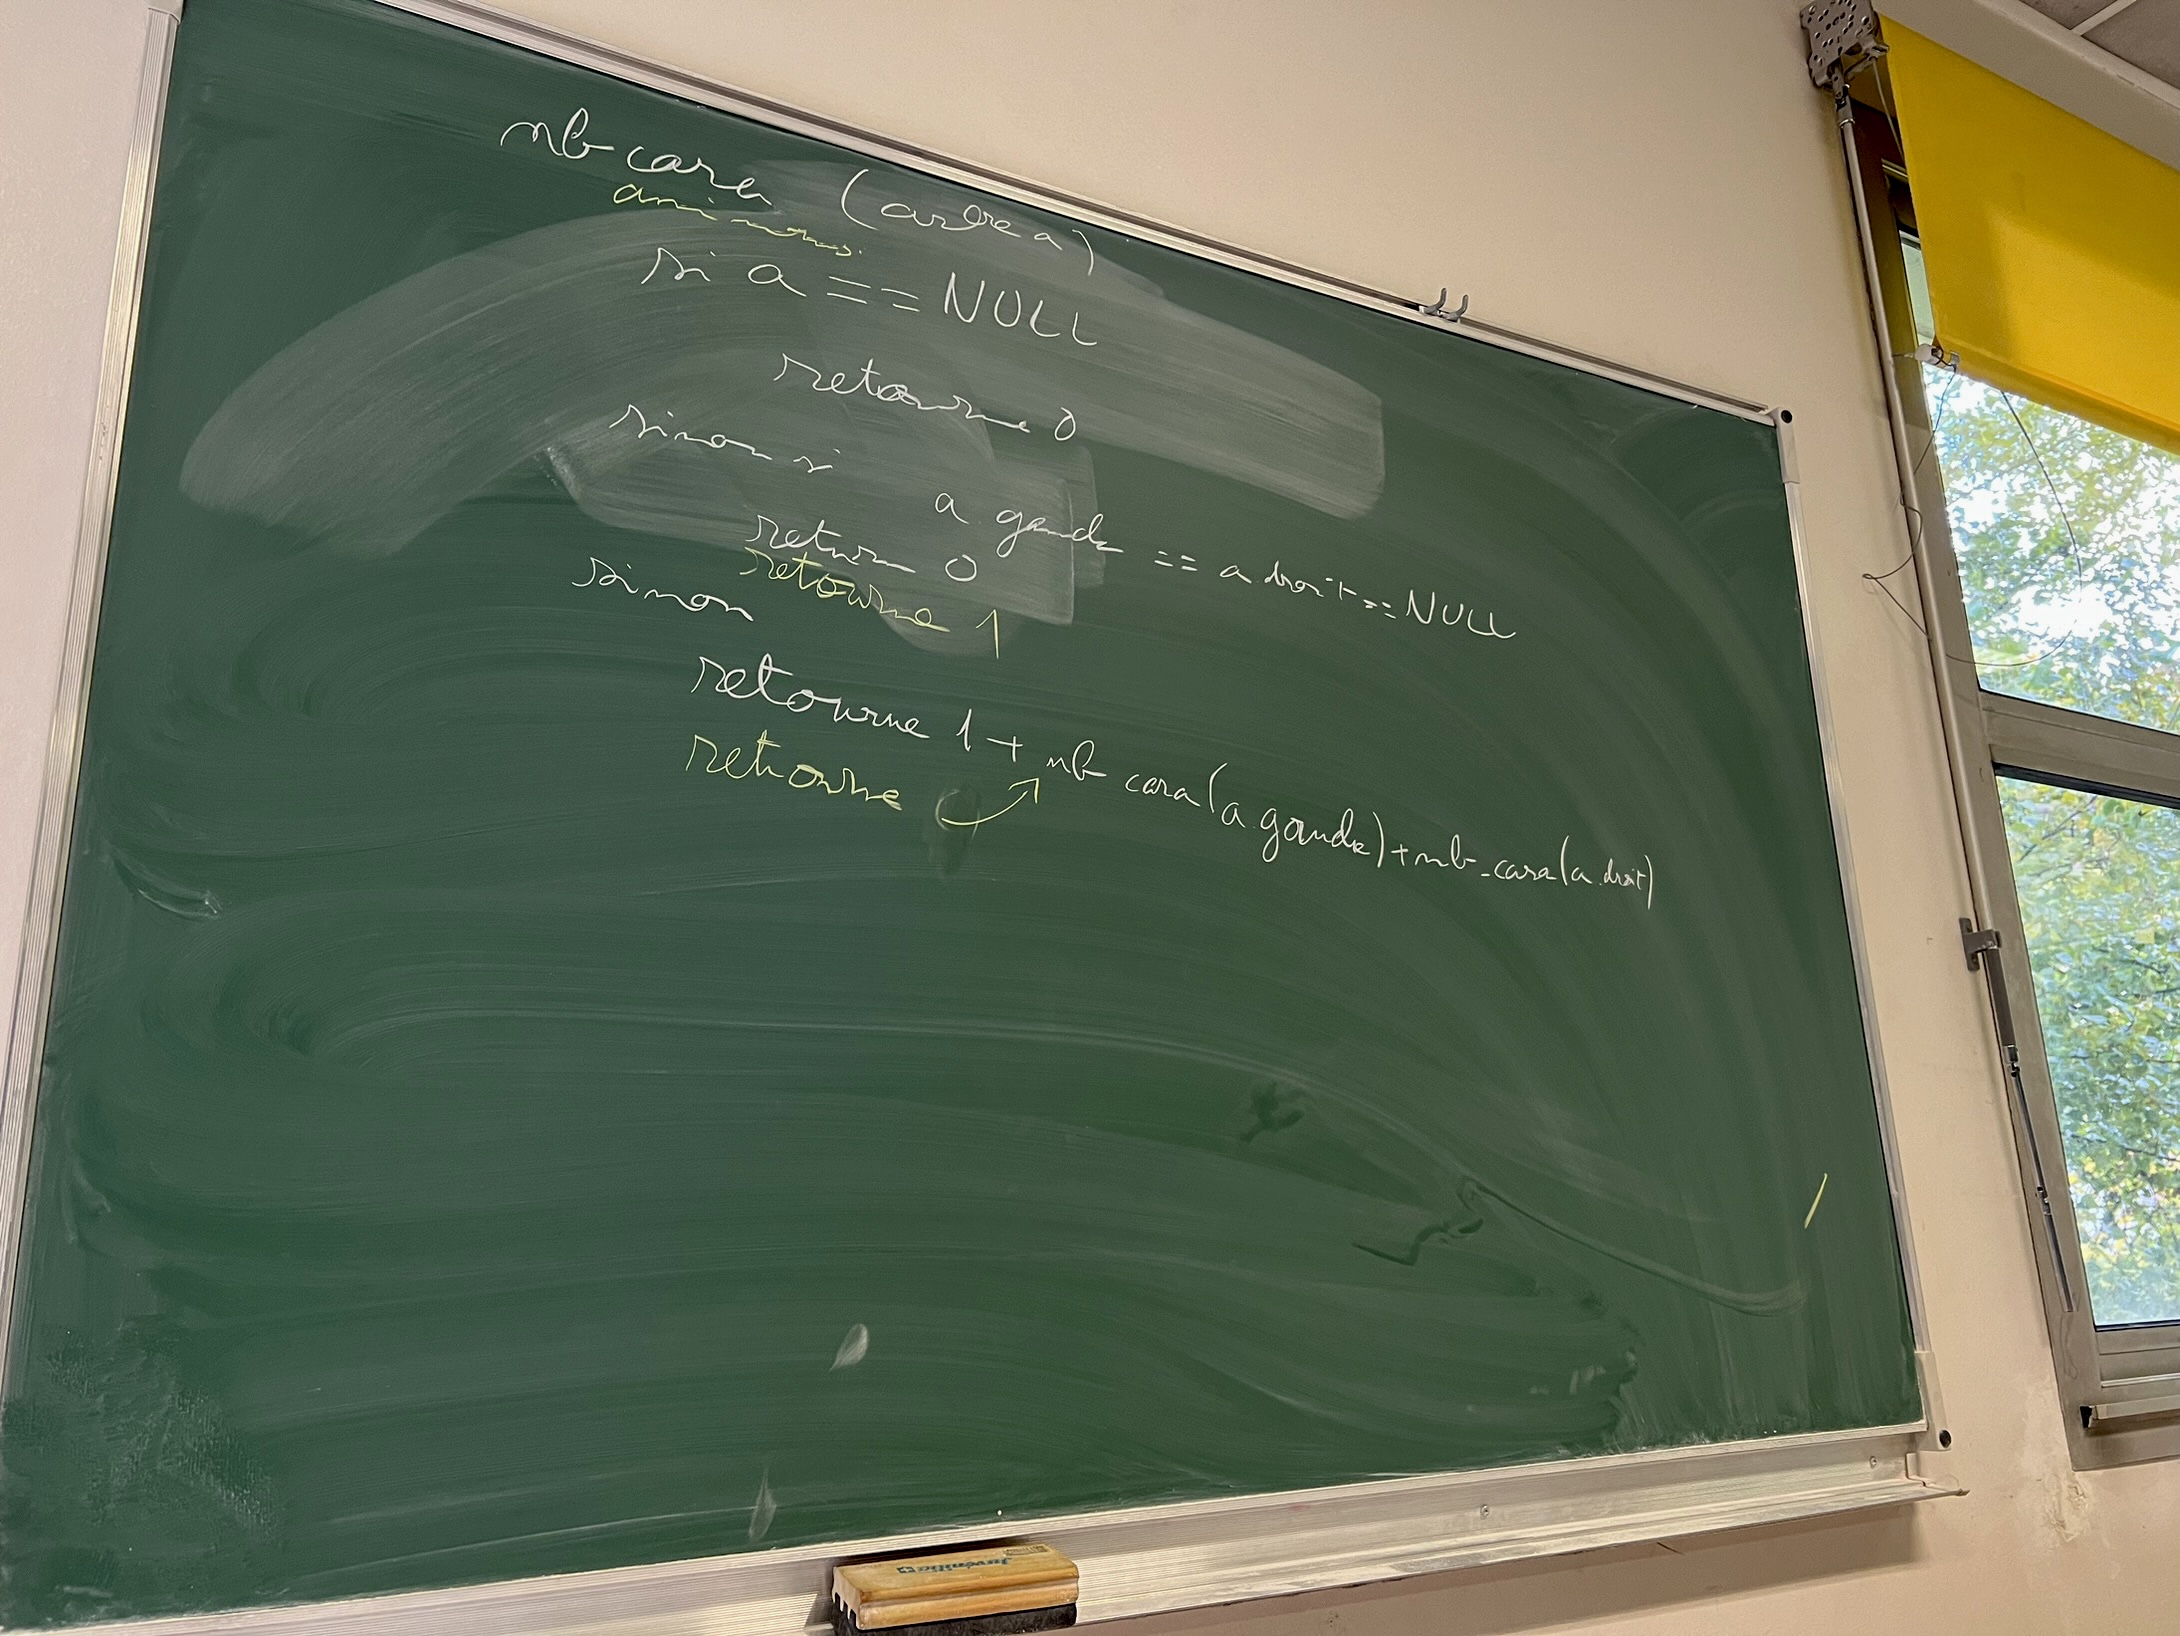 nb cara (arbre a)
animaux
si a == NULL
retourne 0
sinon si
a.gauche == a.droit == NULL
retourne 0
retourne 1
sinon
retourne 1 + nb cara(a.gauche) + nb_cara(a.droit)
retourne
Juvenilia